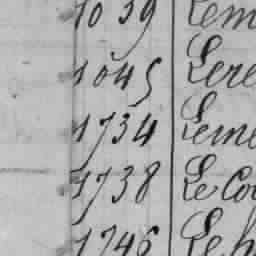 1039 Lem
1645 Lere
1734 Leme
1738 Le Cou
1746 Le h